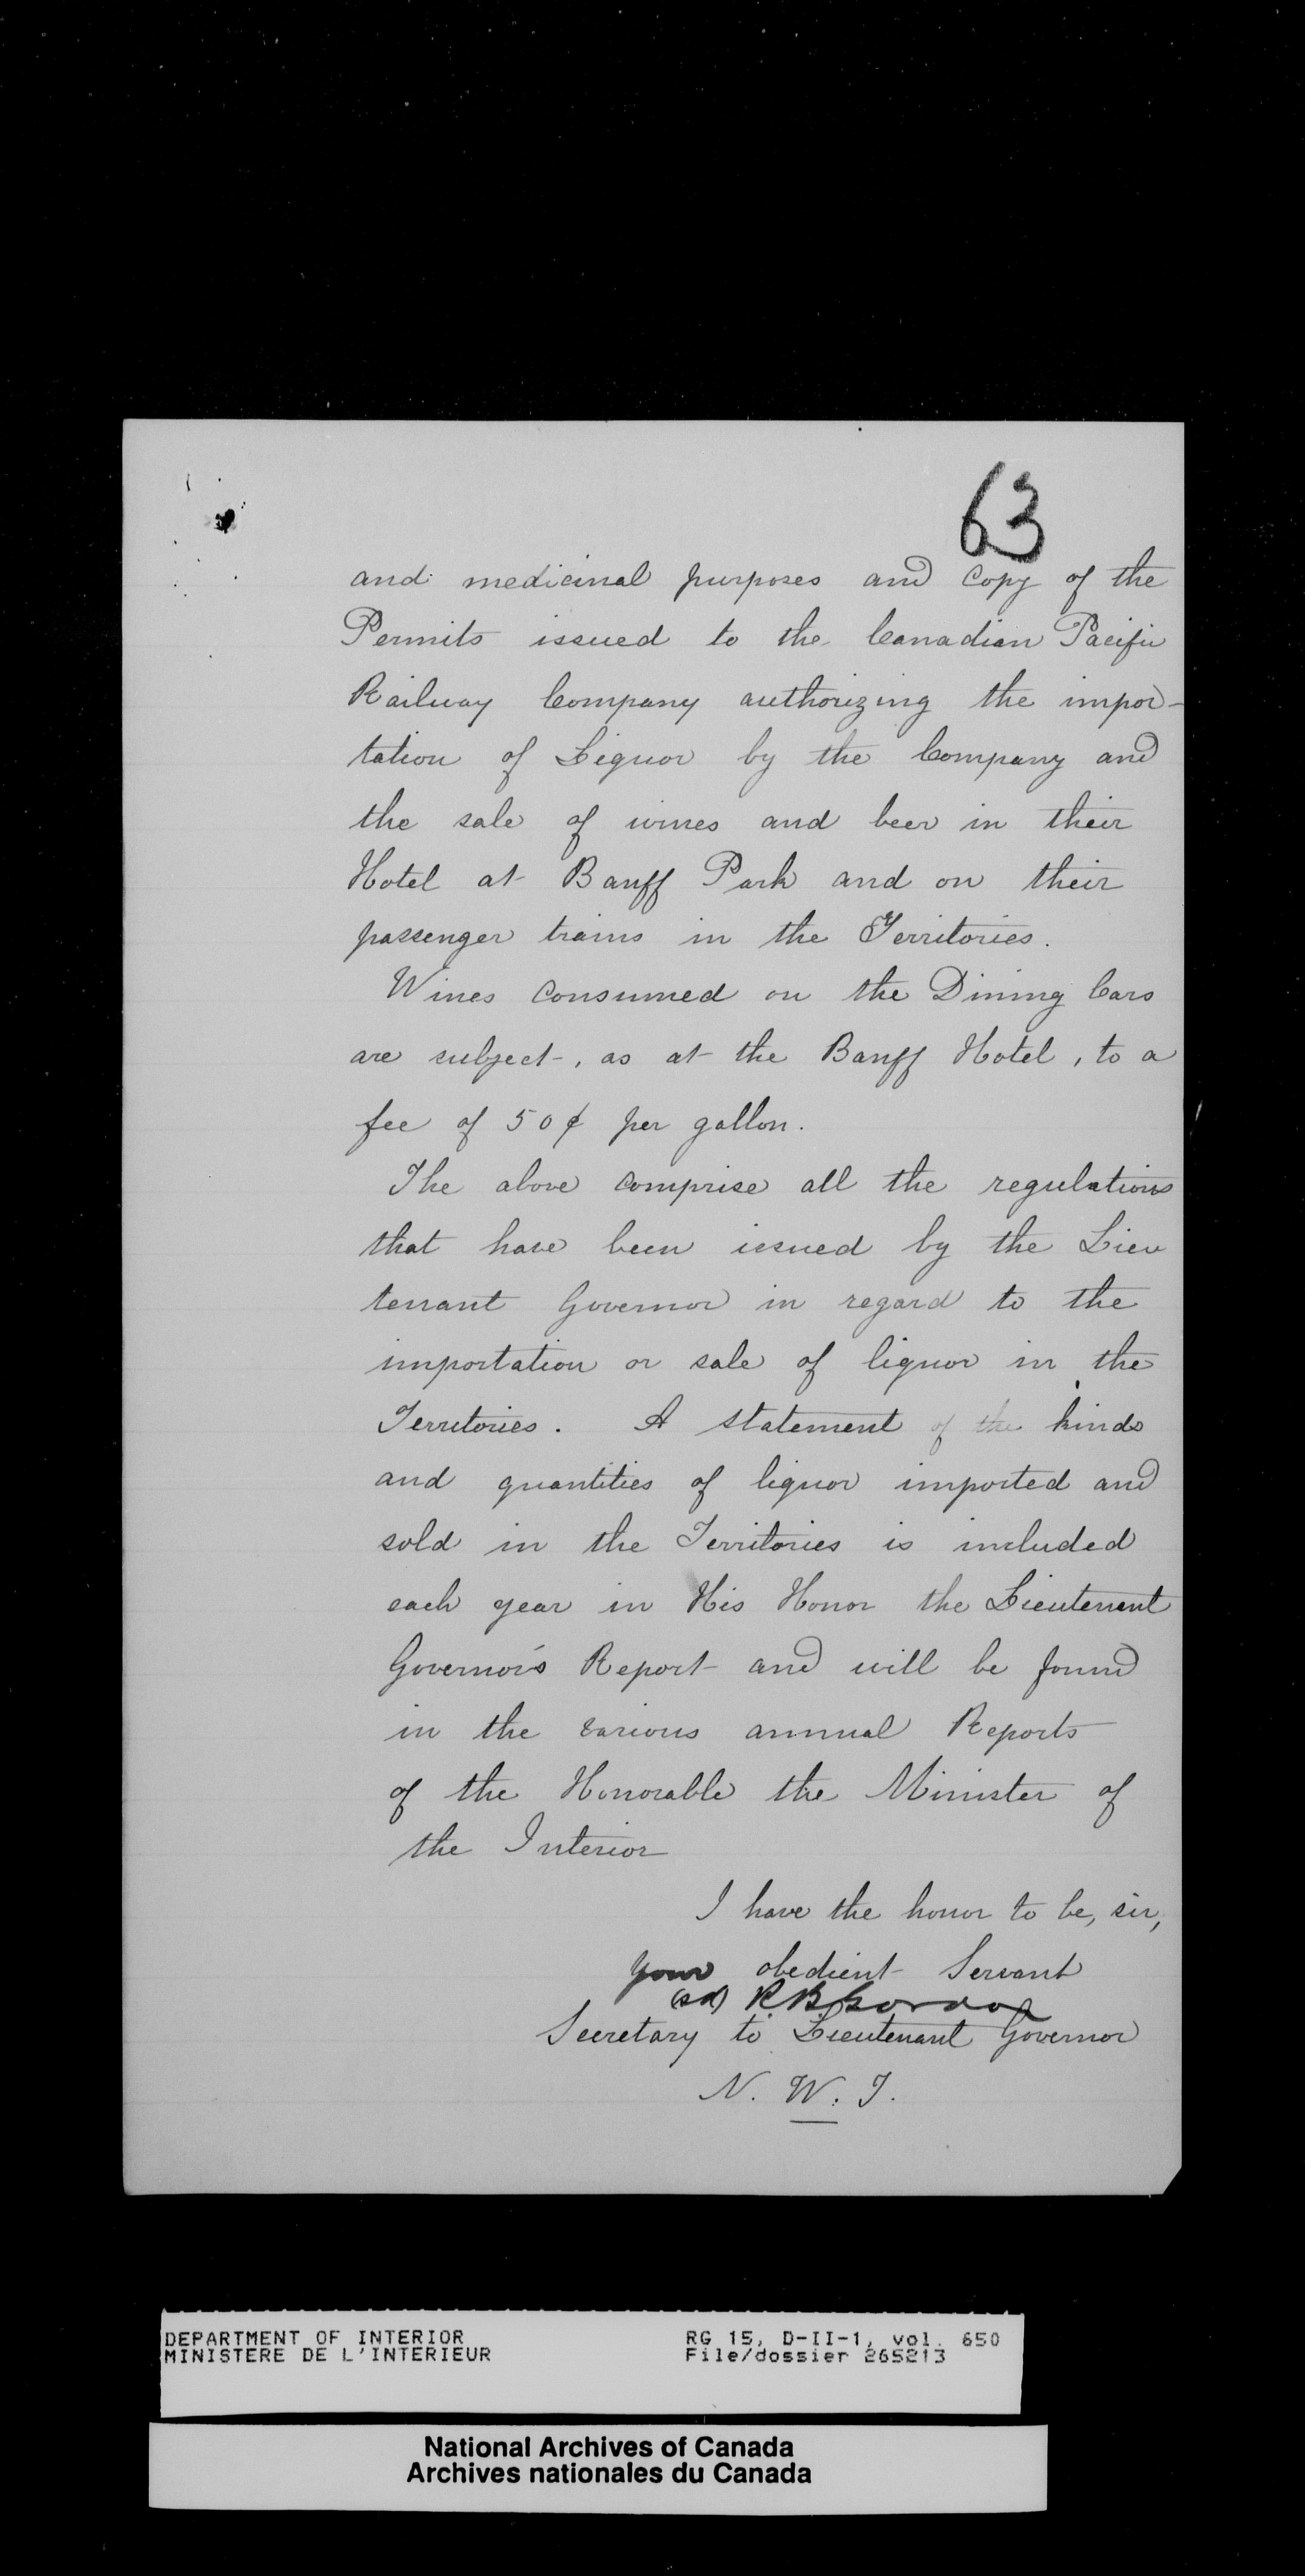 63
and medicinal purposes and copy of the
Permits issued to the Canadian Pacific
Railway Company authorizing the impor-
tation of Liquor by the Company and
the sale of wines and beer in their
Hotel at Banff Park and on their
passenger trains in the Territories.
Wines consumed on the Dining Cars
are subject, as at the Banff Hotel, to a
fee of 50¢ per gallon.
The above comprise all the regulations
that have been issued by the Lieu
tenant Governor in regard to the
importation or sale of liquor in the
Territories. A statement of the kinds
and quantities of liquor imported and
sold in the Territories is included
each year in His Honor the Lieutenant
Governor's Report and will be found
in the various annual Reports
of the Honorable the Minister of
the Interior
I have the honor to be, sir,
your obedient Servant
(sd) R.B. Gordon
Secretary to Lieutenant Governor
N. W. T.
DEPARTMENT OF INTERIOR RG 15, D-II-1, vol. 650
MINISTERE DE L'INTERIEUR File/dossier 265213
National Archives of Canada
Archives nationales du Canada